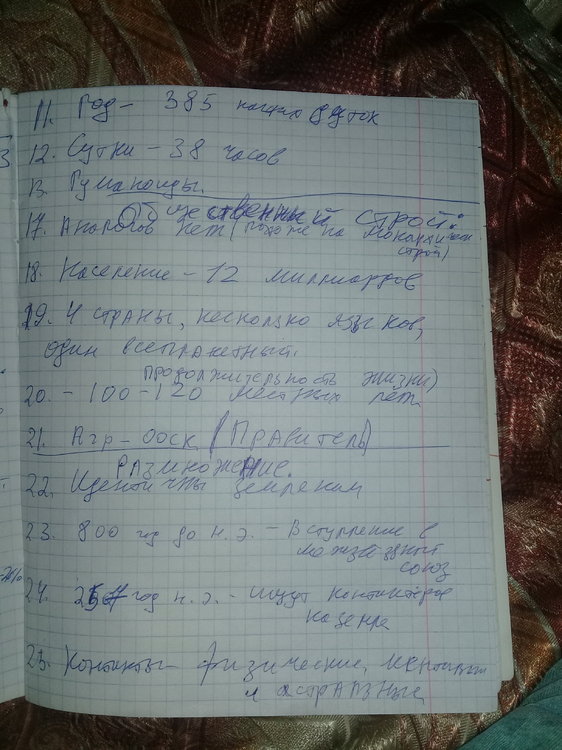 11. Год - 385 наших суток
12. Сутки - 38 часов
13. Гуманоиды.
Общественный строй:
17. Аналогов нет (похоже на монархический
строй)
18. Население - 12 миллиардов
19. 4 страны, несколько языков,
один всепланетный.
продолжительность жизни)
20. - 100-120 местных лет.
21. Агр-Ооск (Правитель)
Размножение.
22. Идентичны землянам
23. 800 год до н.э. - Вступление в
межзвёздный
союз
24. год н.э. - ищут контактёров
на земле
25. Контакты - физические, ментальные
и астральные